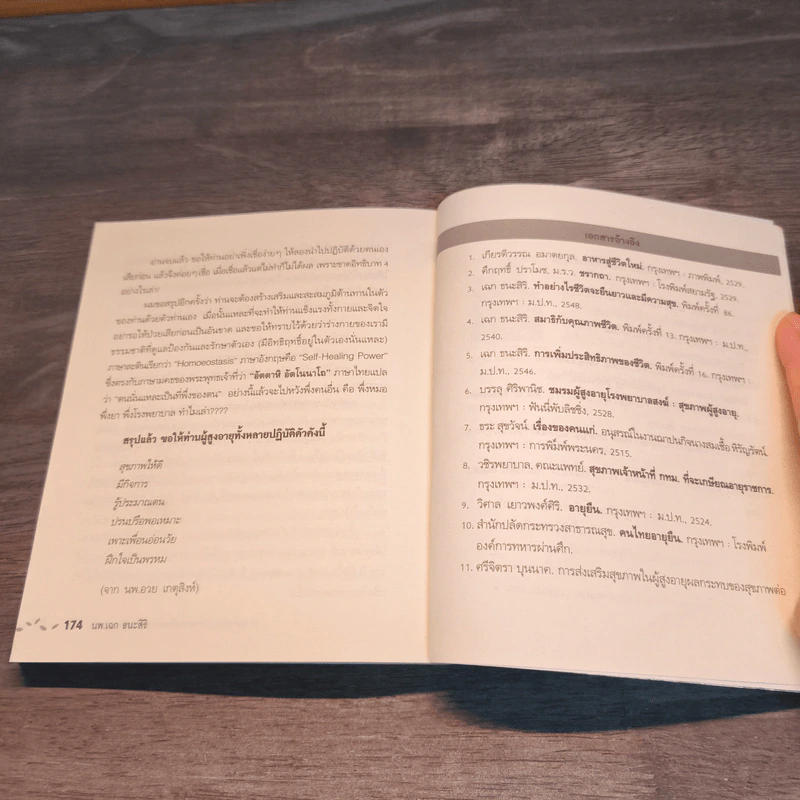 อ่านจบแล้ว ขอให้ท่านอย่าเพิ่งเชื่อง่ายๆ ให้ลองนำไปปฏิบัติด้วยตนเอง
เสียก่อน แล้วจึงค่อยๆ เชื่อ เมื่อเชื่อแล้วแต่ไม่ทำก็ไม่ได้ผล เพราะขาดอิทธิบาท 4
อย่างไรเล่า!
ผมขอสรุปอีกครั้งว่า ท่านจะต้องสร้างเสริมและสะสมภูมิต้านทานในตัว
ของท่านด้วยตัวท่านเอง เมื่อนั้นแหละที่จะทำให้ท่านแข็งแรงทั้งกายและจิตใจ
อย่ารอให้ป่วยเสียก่อนเป็นอันขาด และขอให้ทราบไว้ด้วยว่าร่างกายของเรามี
ธรรมชาติที่ดูแลป้องกันและรักษาตัวเอง (มีอิทธิฤทธิ์อยู่ในตัวเองนั่นแหละ)
ภาษาละตินเรียกว่า "Homoeostasis" ภาษาอังกฤษคือ "Self-Healing Power"
ซึ่งตรงกับภาษามคธของพระพุทธเจ้าที่ว่า "อัตตาหิ อัตโนนาโถ" ภาษาไทยแปล
ว่า "ตนนั่นแหละเป็นที่พึ่งของตน" อย่างนี้แล้วจะไปหวังพึ่งคนอื่น คือ พึ่งหมอ
พึ่งยา พึ่งโรงพยาบาล ทำไมเล่า????
สรุปแล้ว ขอให้ท่านผู้สูงอายุทั้งหลายปฏิบัติตัวดังนี้
สุขภาพให้ดี
มีกิจการ
รู้ประมาณตน
ปรนปรือพอเหมาะ
เพาะเพื่อนอ่อนวัย
ฝึกใจเป็นพรหม
(จาก นพ.อวย เกตุสิงห์)
174 นพ.เฉก ธนะสิริ
เอกสารอ้างอิง
1. เกียรติวรรณ อมาตยกุล. อาหารสู่ชีวิตใหม่. กรุงเทพฯ : ภาพพิมพ์, 2529.
2. คึกฤทธิ์ ปราโมช, ม.ร.ว. ชรากถา. กรุงเทพฯ : โรงพิมพ์สยามรัฐ, 2529.
3. เฉก ธนะสิริ. ทำอย่างไรชีวิตจะยืนยาวและมีความสุข. พิมพ์ครั้งที่ 86.
กรุงเทพฯ : ม.ป.ท., 2548.
4. เฉก ธนะสิริ. สมาธิกับคุณภาพชีวิต. พิมพ์ครั้งที่ 13. กรุงเทพฯ : ม.ป.ท.,
2540.
5. เฉก ธนะสิริ. การเพิ่มประสิทธิภาพของชีวิต. พิมพ์ครั้งที่ 16. กรุงเทพฯ :
ม.ป.ท., 2546.
6. บรรลุ ศิริพานิช. ชมรมผู้สูงอายุโรงพยาบาลสงฆ์ : สุขภาพผู้สูงอายุ.
กรุงเทพฯ : ฟันนี่พับลิชชิ่ง, 2528.
7. ธระ สุขวัจน์. เรื่องของคนแก่. อนุสรณ์ในงานฌาปนกิจนางสมเชื้อ หิรัญรัตน์.
กรุงเทพฯ : การพิมพ์พระนคร, 2515.
8. วชิรพยาบาล, คณะแพทย์. สุขภาพเจ้าหน้าที่ กทม. ที่จะเกษียณอายุราชการ.
กรุงเทพฯ : ม.ป.ท., 2532.
9. วิศาล เยาวพงศ์ศิริ. อายุยืน. กรุงเทพฯ : ม.ป.ท., 2524.
10. สำนักปลัดกระทรวงสาธารณสุข. คนไทยอายุยืน. กรุงเทพฯ : โรงพิมพ์
องค์การทหารผ่านศึก.
11. ศรีจิตรา บุนนาค. การส่งเสริมสุขภาพในผู้สูงอายุผลกระทบของสุขภาพต่อ